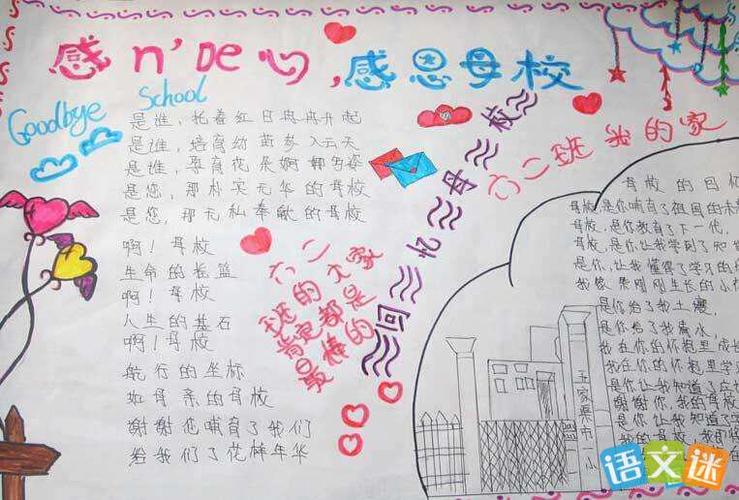 感 n' De 心,感恩母校
Goodbye School
是谁,托着红日冉冉升起
是谁,培育幼苗参入云天
是谁,要育花朵婀娜多姿
是您,那朴实无华的母校
是您,那无私奉献的母校
啊!母校
生命的摇篮
啊!母校
人生的基石
啊!母校
航行的坐标
如母亲的母校
谢谢也哺育了我们
给我们了花样年华
六二
班的大家
肯定都是
最棒的
回忆母校
六二班 我的家
母校的回忆
母校,是你哺育了祖国的未
母校,是你教育了下一代,
母校,是你让我学到了知
是你,让我懂得了学习的
是你给了我土壤,
是你给了我
我在你的怀抱里成
我在你的怀抱里学
是你让我知道了
谢谢你,我的母校
是你让我知道了
我的母校,我
王家
市
一小
语文迷